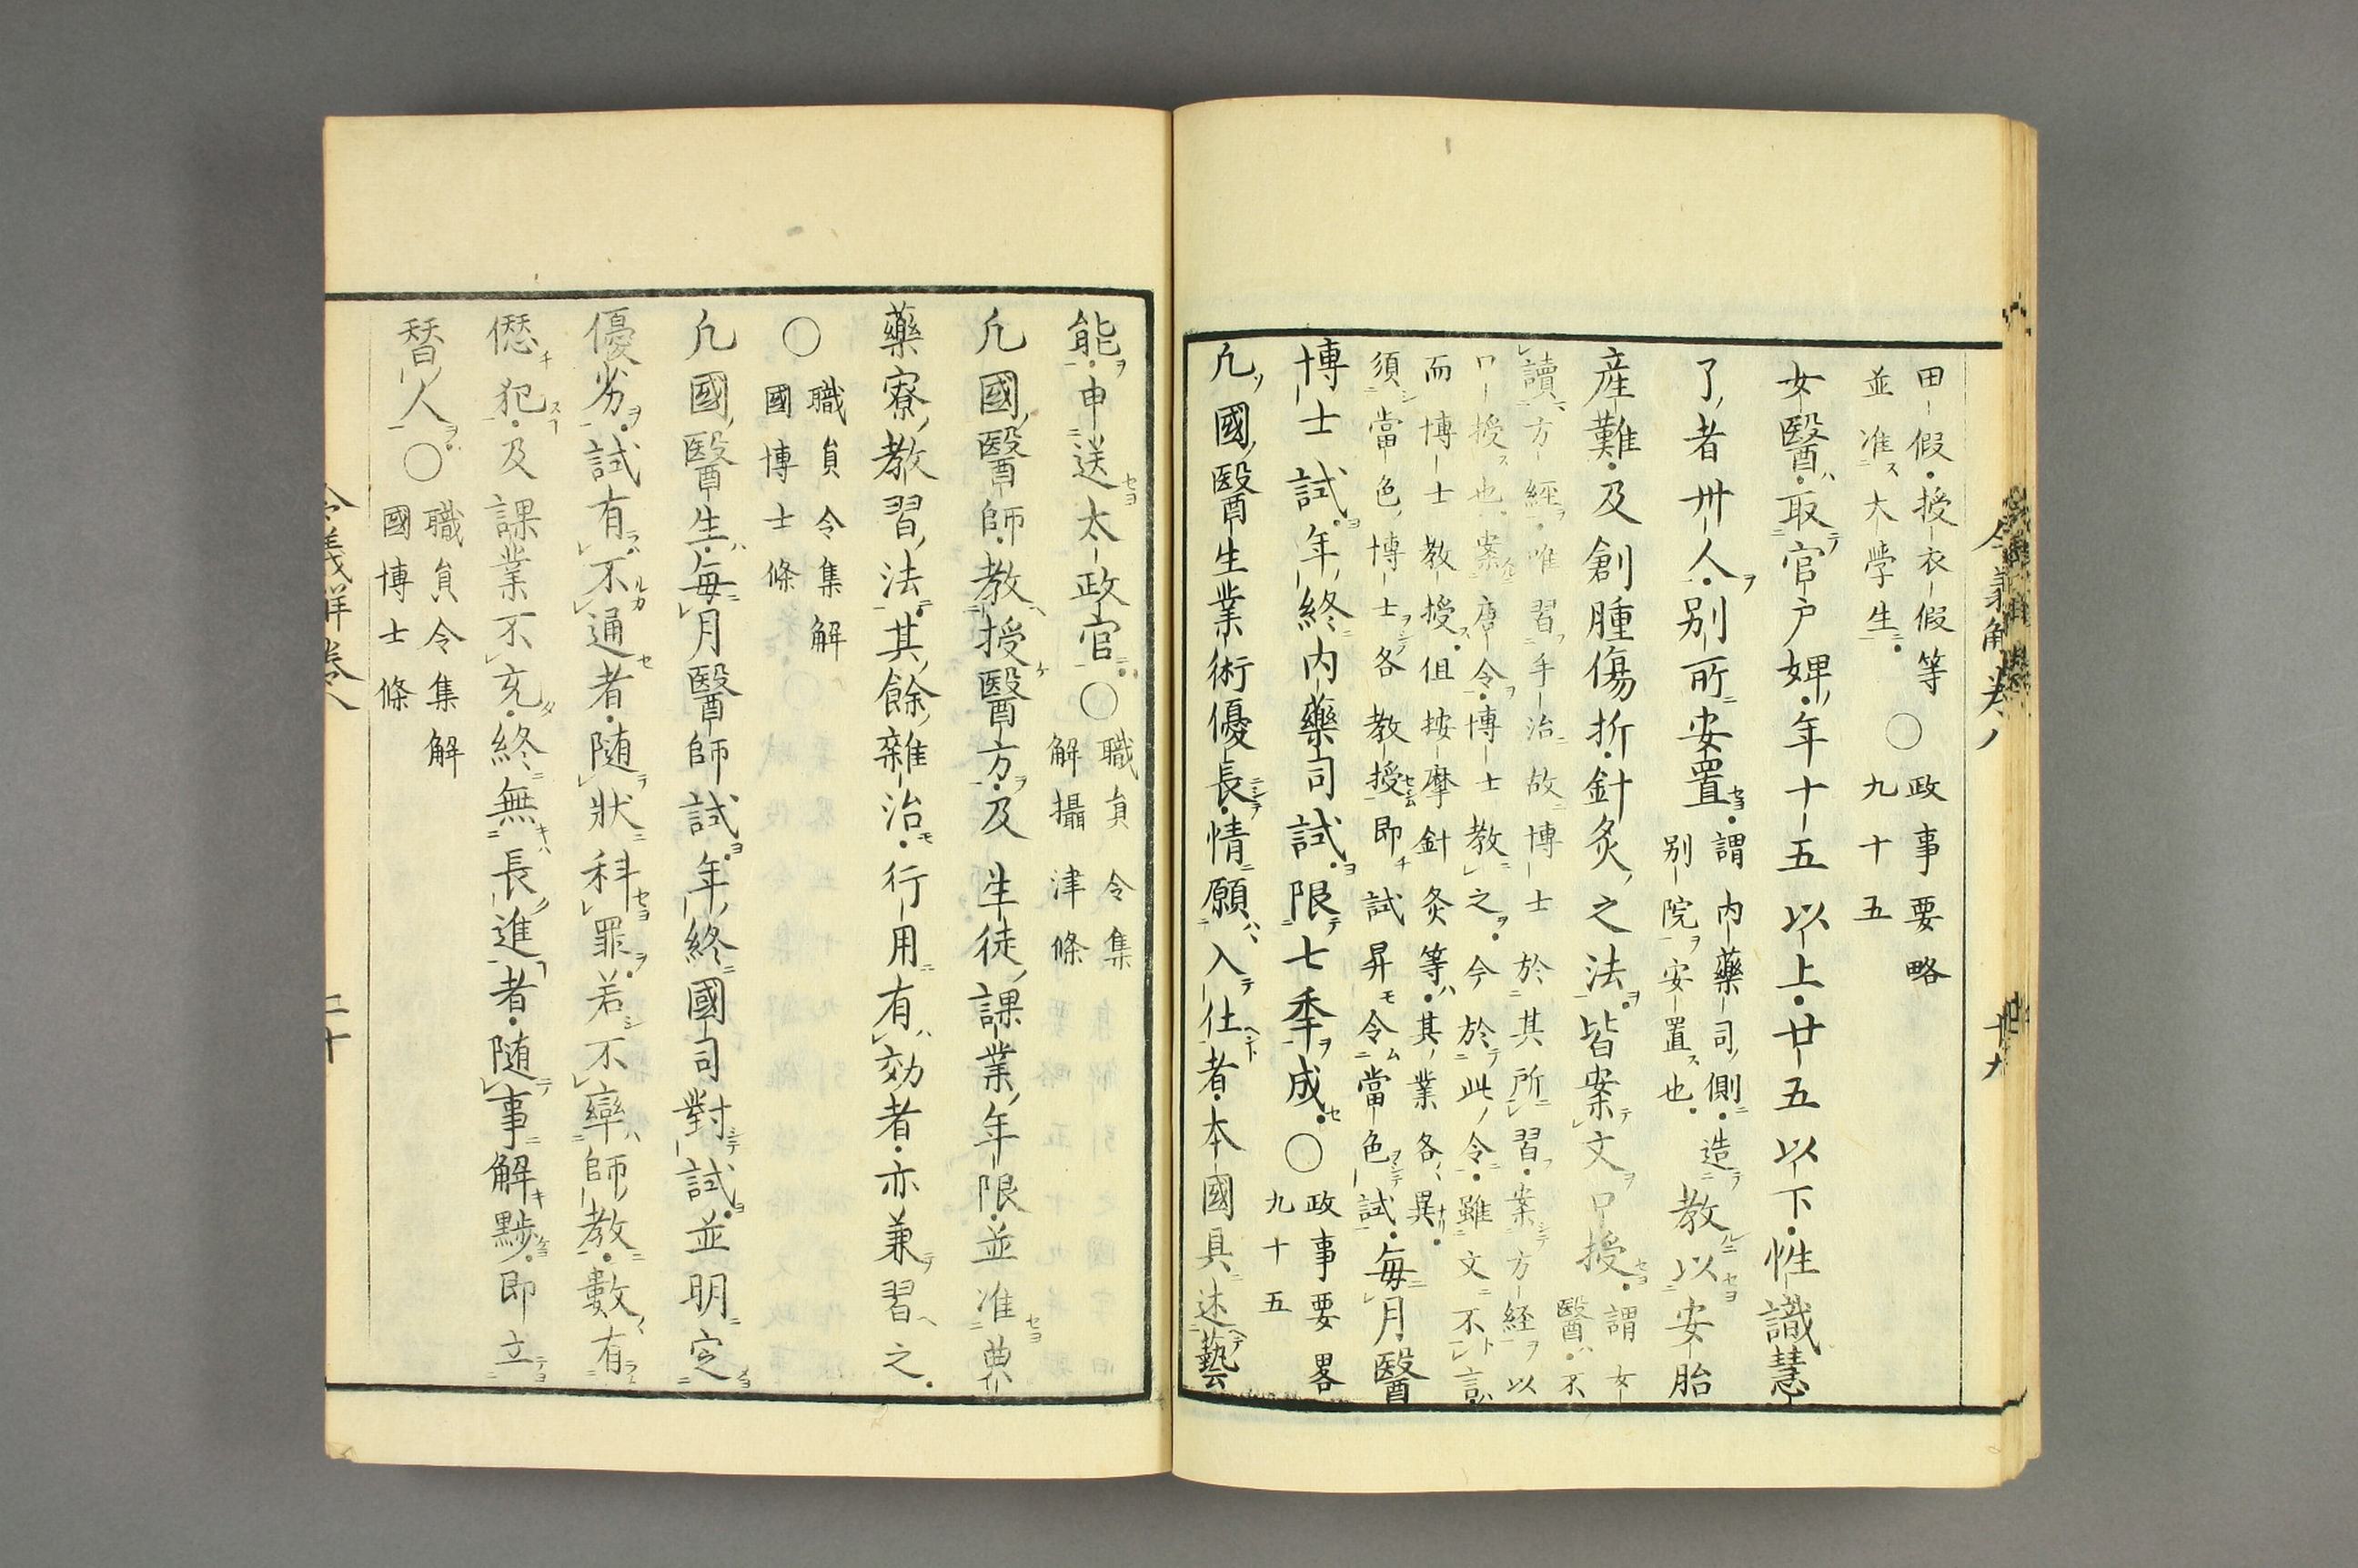 田假授衣假等
並准大学生
○
政事要略
九十五
女醫取官戸婢年十五以上廿五以下性識慧
了者卅人別所安置
謂内藥司側造
別院安置也
教以安胎
産難及創腫傷折針灸之法皆案文口授
謂女
醫不
讀方經唯習手治故博士於其所習案方経以
口授也案唐令博士教之今於此令雖文不言
而博士教授但按摩針灸等其業各異
須當色博士各教授即試昇令當色試
毎月醫
博士試年終内藥司試限七季成○
政事要畧
九十五
凢國醫生業術優長情願入仕者本國具述藝
令義解 巻八
能申送太政官○
職貟令集
解攝津條
凢國醫師教授醫方及生徒課業年限並准典
藥寮教習法其餘雜治行用有効者亦兼習之
○
職貟令集解
國博士條
凢國醫生毎月醫師試年終國司對試並明定
優劣試有不通者随狀科罪若不率師教數有
僁犯及課業不充終無長進者随事解黜即立
替人○
職貟令集解
國博士條
令義解巻八
二十